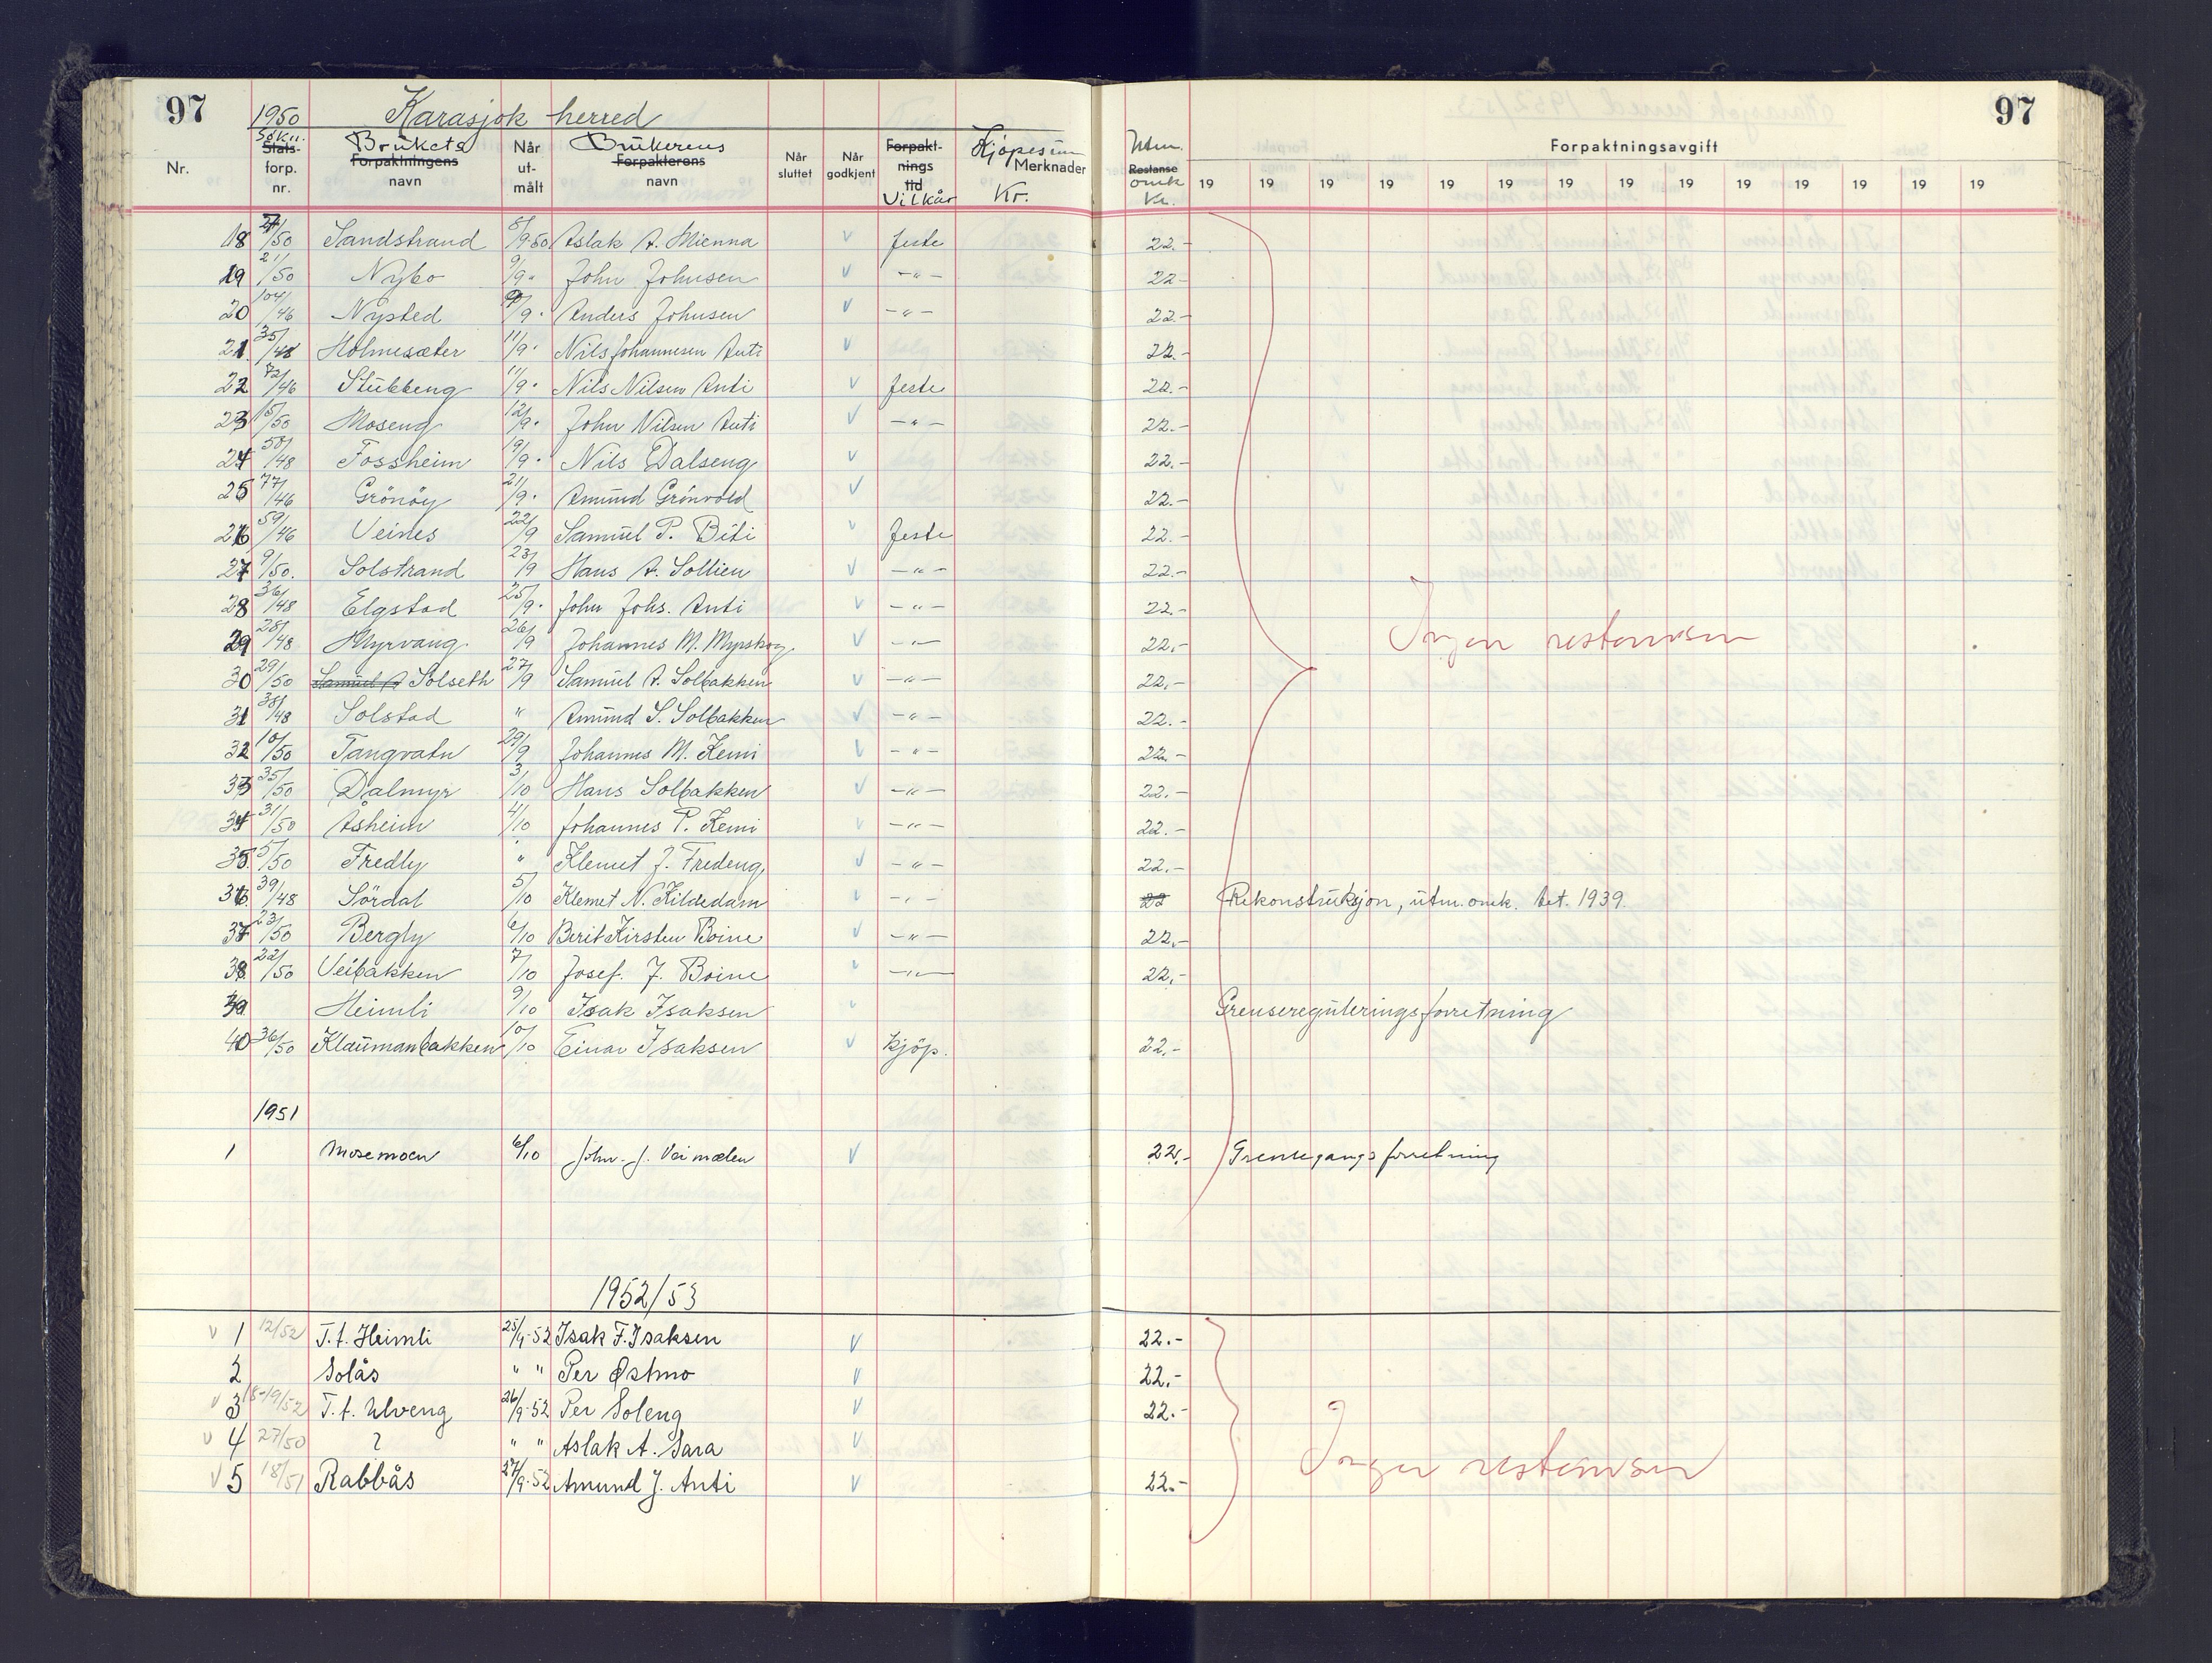 97 1950 Karasjok herred 97
Nr. Søkn. Stats-forp. nr. Brukets Forpaktningens navn Når ut-målt Brukerens Forpakterens navn Når sluttet Når godkjent Forpakt-nings tid Vilkår Kjøpesum Merknader Kr. Utm. Restanse omk Kr. Forpaktningsavgift
19 19 19 19 19 19 19 19 19 19 19 19 19 19
18 27/50 Sandstrand 8/9-50 Aslak A. Mienna v feste 22.-
19 21/50 Nybo 9/9 " John Johnsen v -"- 22-
20 104/46 Nysted 9/9 " Anders Johnsen v -"- 22.-
21 35/48 Holmesæter 11/9 " Nils Johannesen Anti v 22.-
22 72/46 Stubbeng 11/9 " Nils Nilsen Anti v feste 22.-
23 15/50 Moseng 12/9 " John Nilsen Anti v -"- 22.-
24 50/48 Fossheim 19/9 " Nils Dalseng v 22.-
25 77/46 Grönöy 21/9 " Amund Grönvold v 22.-
26 59/46 Veines 22/9 Samuel P. Biti v feste 22.-
27 9/50. Solstrand 23/9 Hans A. Sollien v -"- 22.-
28 36/48 Elgstad 25/9 " John Johs. Anti v -"- 22.-
29 28/48 Myrvang 26/9 Johannes M. Myrskog v -"- 22.-
Ingen restanser
30 29/50 Samuel A Solseth 27/9 Samuel A. Solbakken v -"- 22.-
31 38/48 Solstad " Amund S. Solbakken v -"- 22.-
32 10/50 Tangvatn 29/9 Johannes M. Kemi v -"- 22.-
33 35/50 Dalmyr 3/10 Hans Solbakken v -"- 22.-
34 31/50 Åsheim 4/10 Johannes P. Kemi v -"- 22.-
35 5/50 Fredly " Klemet J. Fredeng v -"- 22.-
36 39/48 Sördal 5/10 Klemet N. Kildedam v -"- 22 Rekonstruksjon, utm. omk. bet. 1939.
37 23/50 Bergly 6/10 Berit Kirsten Boine v -"- 22.-
38 22/50 Veibakken 7/10 Josef. J. Boine v -"- 22.-
39 Heimli 9/10 Isak Isaksen v Grensereguleringsforretning
40 36/50 Klaumanbakken 10/10 Einar Isaksen v kjöp. 22.-
1951
1 Mosemoen 6/10 John J. Veimælen v 22.- Grensegangsforretning
1952/53
v 1 12/52 T.t. Heimli 25/9-52 Isak F. Isaksen v 22.-
2 Solås " " Per Østmo v 22.-
v 3 18-19/52 T.t. Ulveng 26/9-52 Per Soleng v 22.-
v 4 27/50 ? " " Aslak A. Sara v
v 5 18/51 Rabbås 27/9-52 Amund J. Anti v 22.-
Ingen restanser